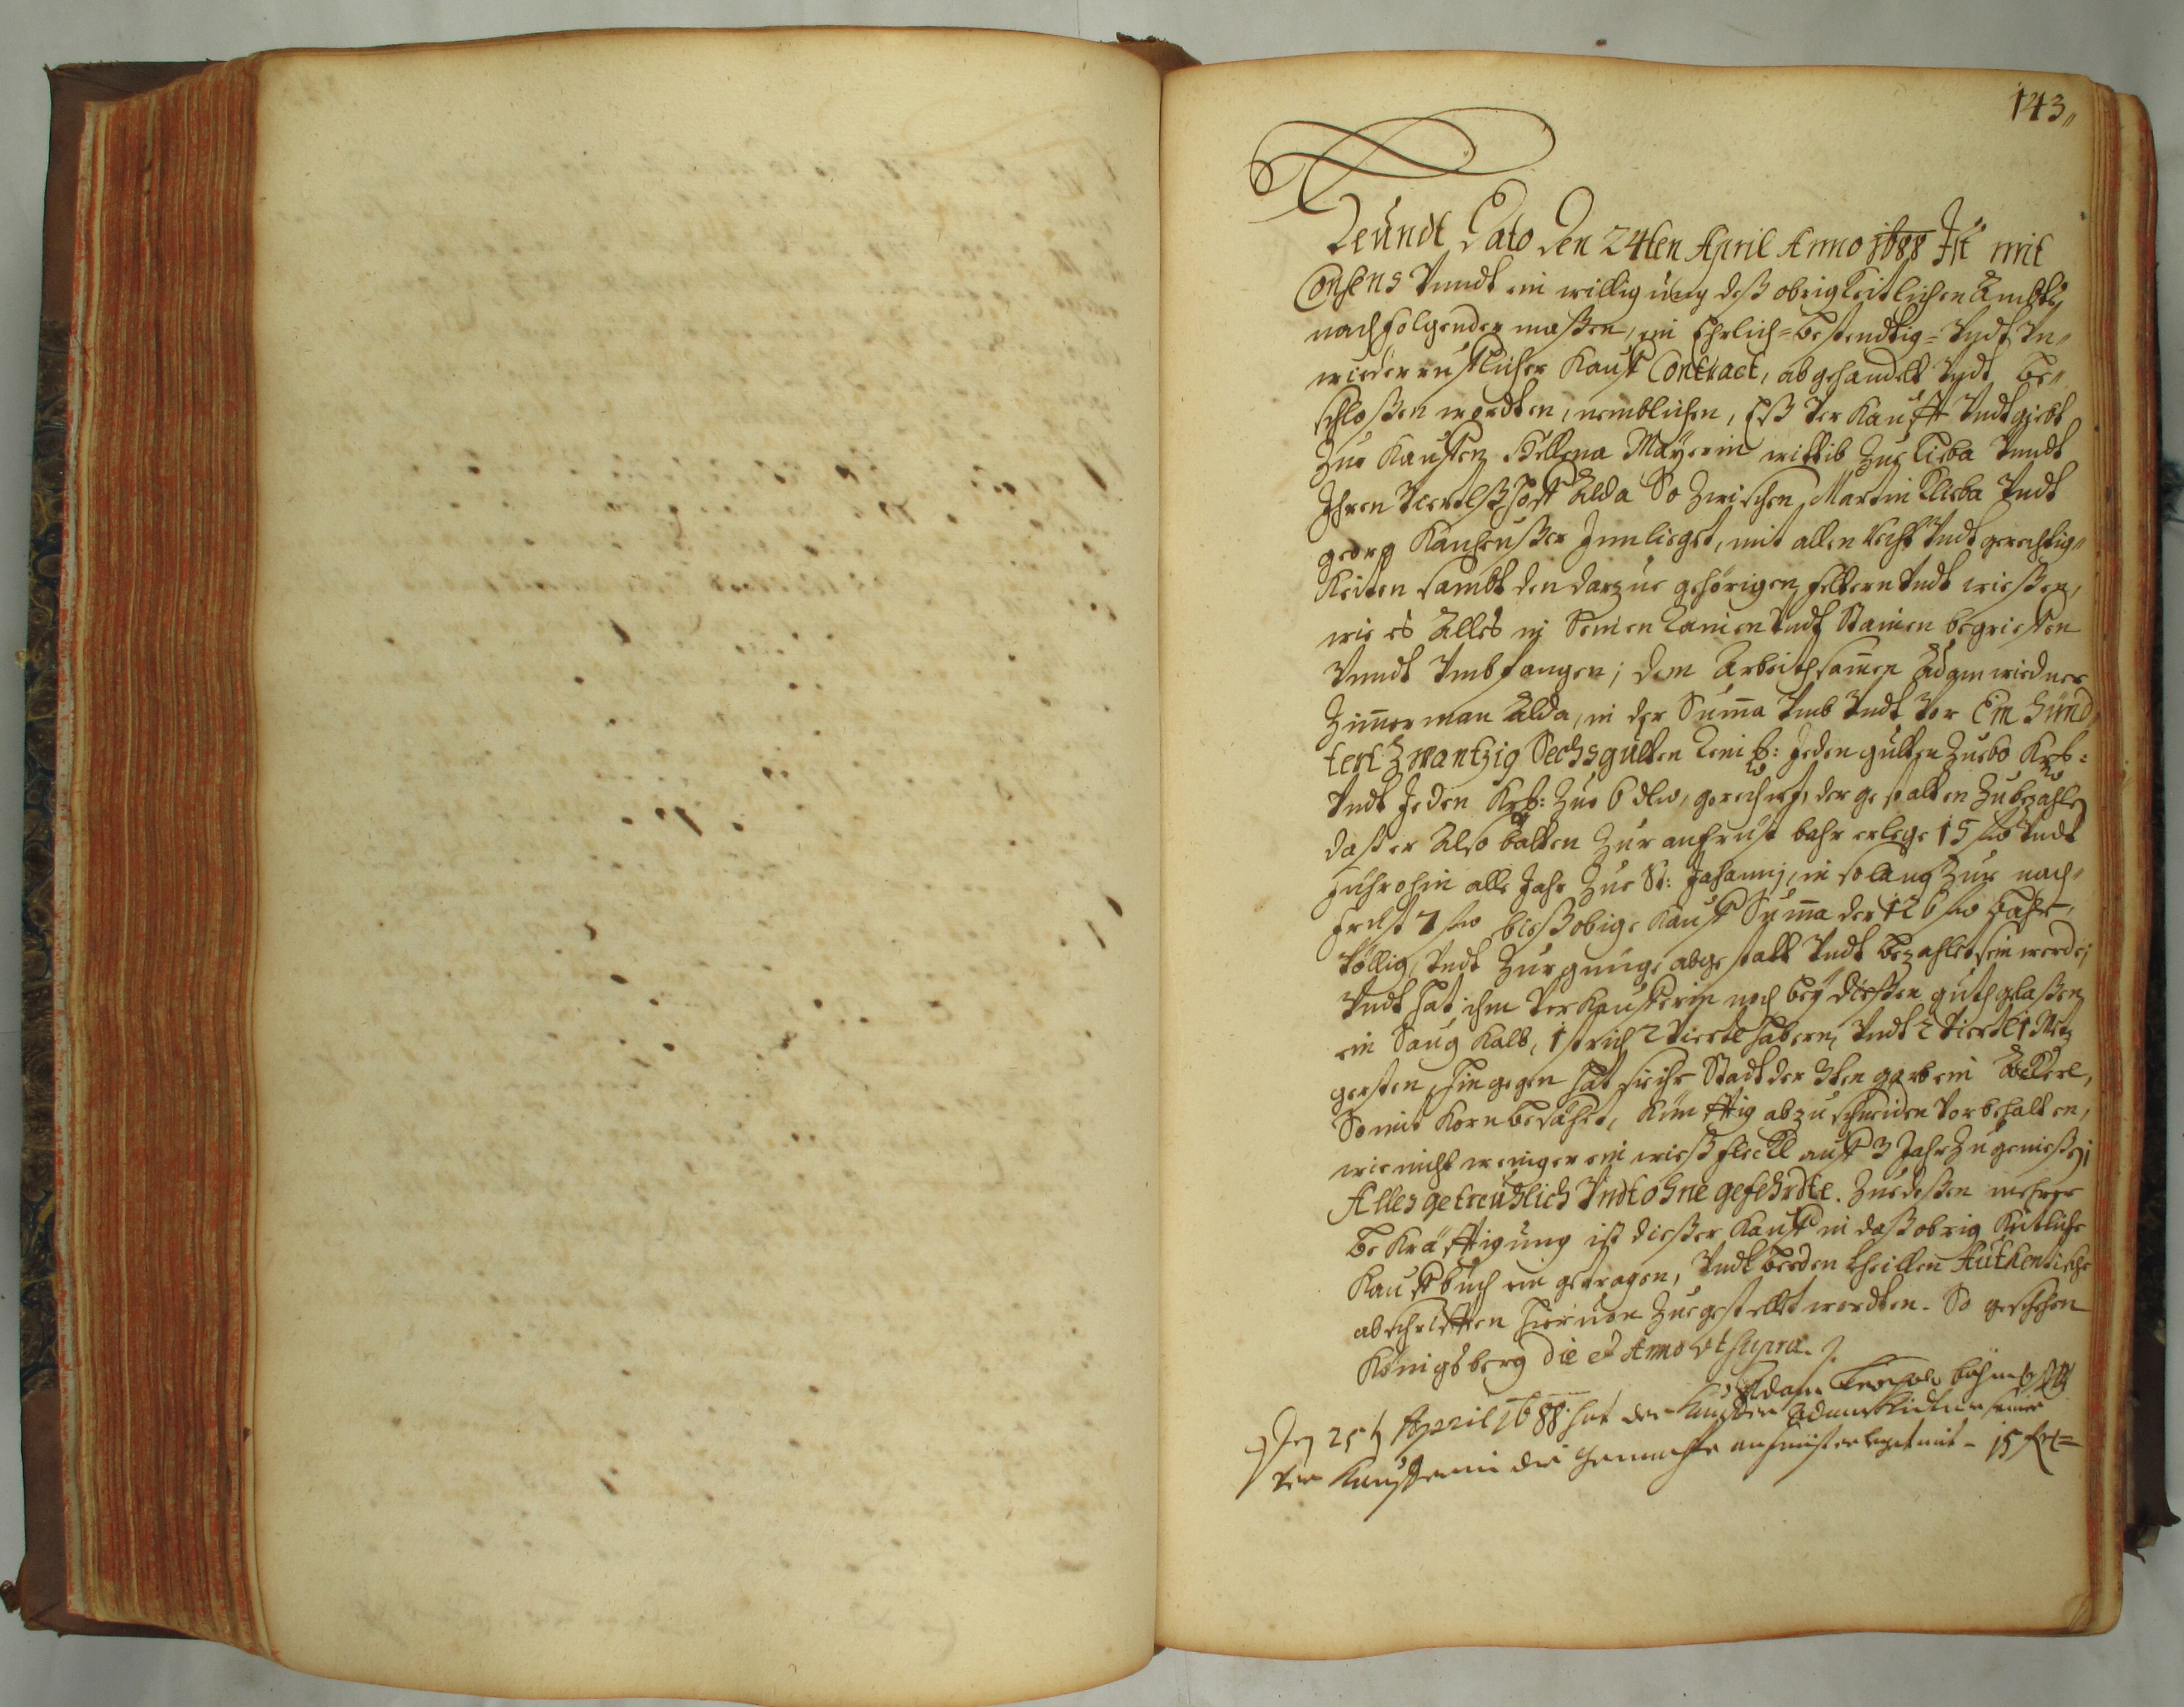 143,,
Heündt Dato Den 24ten April Anno 1688 Ist mit
Consens Vnndt ein willigüng deß obrigkeitlichen Ambts,
nachfolgender maßen, ein Ehrlich= bestendtig= Vndt Vn„
wiederrufflicher Kauff Contract, abgehandelt Vndt be„
schloßen wordten, nemblichen, Eß Verkaufft Vndt giebt
Zue Kauffen Hellena Mayerin wittib Zue Vndt
Ihren Viertlß Hoff Alda So Zwischen Martin Vndt
georg Innlieget, mit allen Recht Vndt gerechtig„
Keiten sambt den darzue gehörigen feltern Vndt wießen,
wie es Alles in Seinen Rainen Vndt Stainen begrieffen
Vnndt Vmbfangen; dem Arbeithsamen Adam wiedner
Zimmerman Alda, in der Suma Vmb Vndt Vor Ein Hünd„
tert Zwantzig Sechs gulten Reinl: Jeden gulten Zue 60 Kr:
Vndt Jeden Kr: Zue 6 gerechnet, der gestalten Zubezahlen
daß er Also balten Zur anfrist bahr erlege 15 Vndt
führohin alle Jahr Zue St: Johannj, in solang Zur nach„
frist 7 bieß obige Kauff Suma der 126 bahr,
Völlig, Vndt Zur gnüge abgestatt Vndt bezahlet sein werde;
Vndt hat ihm Verkaufferin noch bey dießen guth glaßen
ein Saug Kalb, 1 strich 2 Viertl habern, Vndt 2 Viertl 1 Metz
gersten, hingegen hat sie ihr Statt der 3ten garb ein Äckerl,
So mit Korn besähet, Künfftig abzuschneiden Vorbehalten,
wie nicht weniger ein wieß fleckl auff 3 Jahr Zugenießen;
Alles getreüchlich Vndt ohne gefehrdte. Zue deßen mehrer
bekräfftigung ist dießer Kauff in daß obrigkeitliche
Kauffbuch ein getragen, Vndt beeden theillen Authentische
abschrifften hieruon Zuegestellet wordten. So geschehen
Königsberg die et Anno vt supra.
Adam
Den 25t April 1688 hat der Kauffer Adam seiner
Ver Kaufferin die gemachte anfrist erleget mit - 15 f